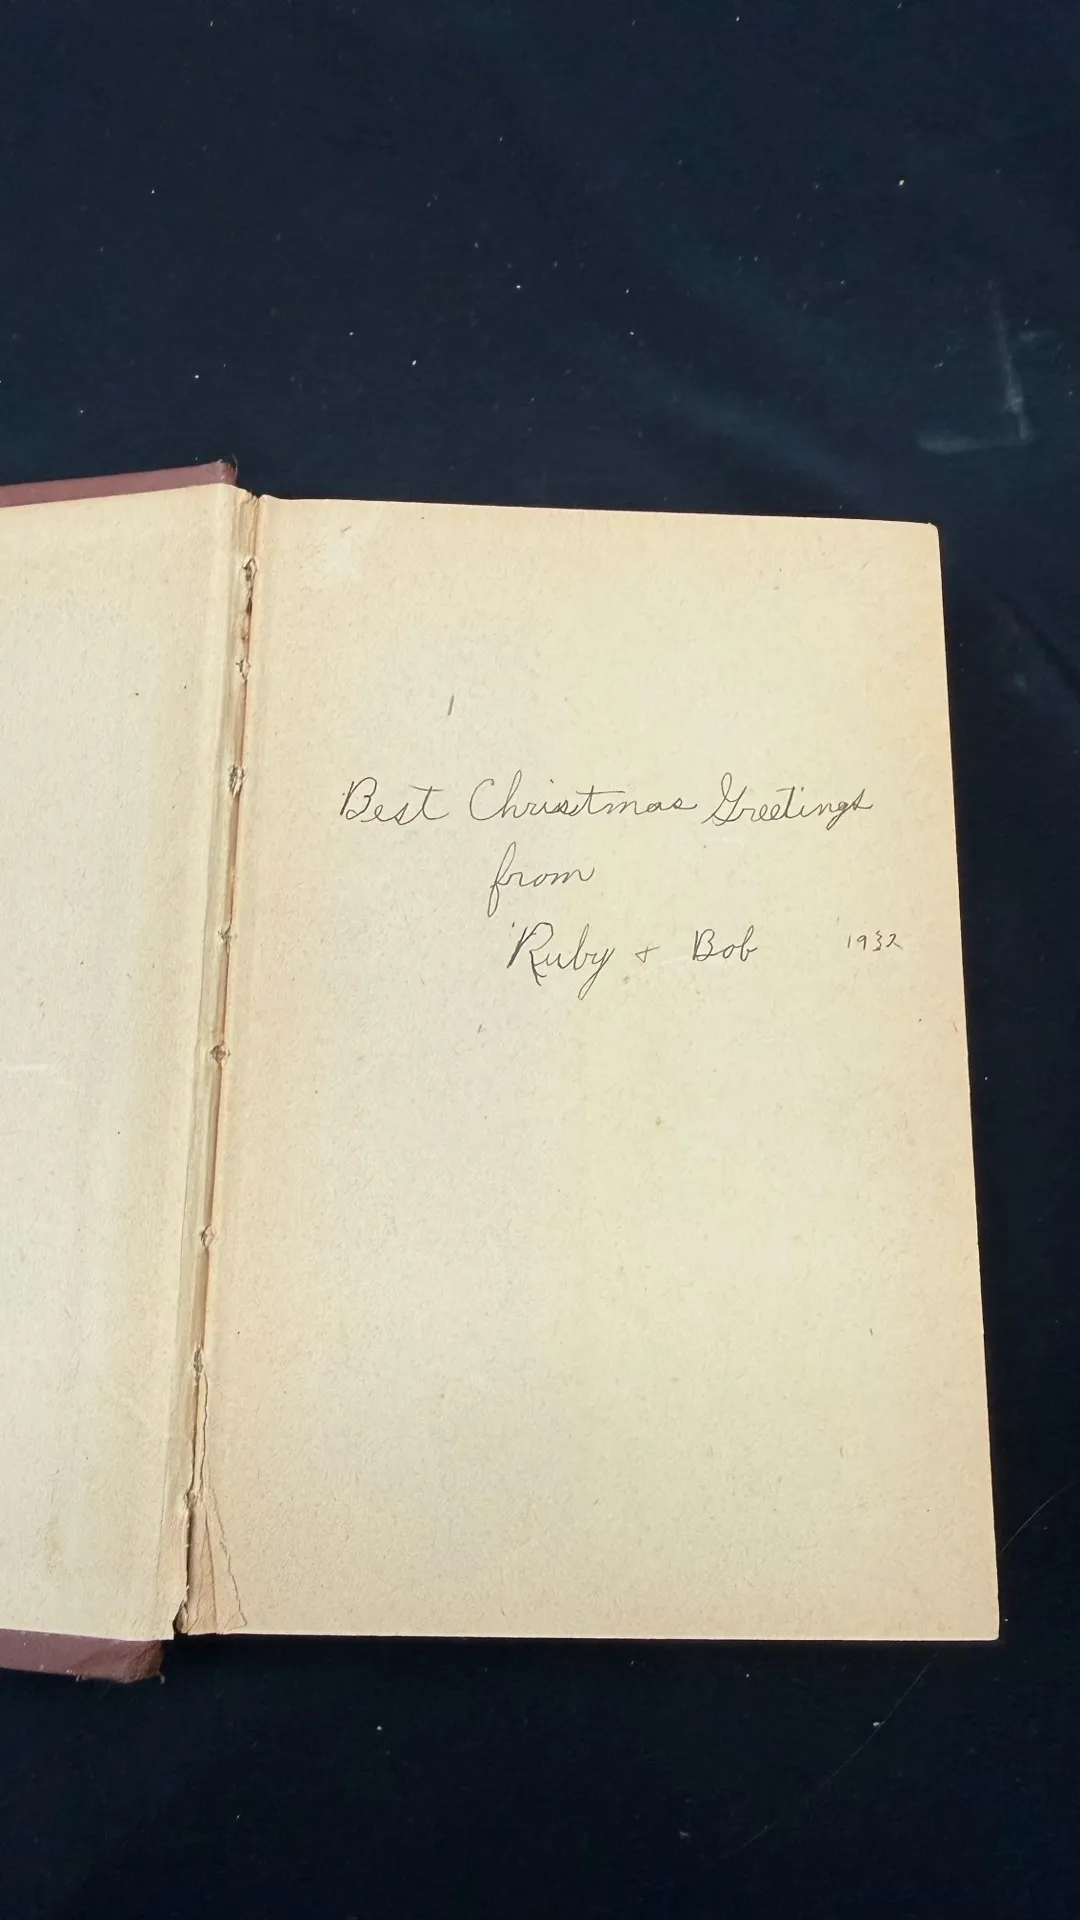 Best Christmas Greetings
from
Ruby + Bob 1932